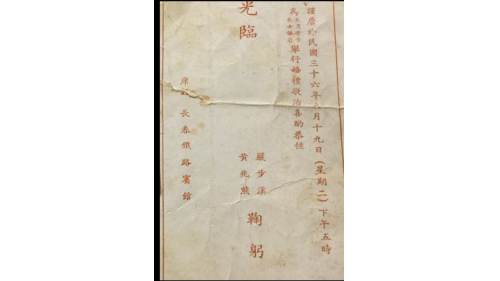 謹詹於民國三十六年八月十九日(星期二)下午五時
為
長女
舉行婚禮敬治喜酌恭候
光臨
嚴步
黃兆熊
鞠躬
席設 長春鐵路賓館